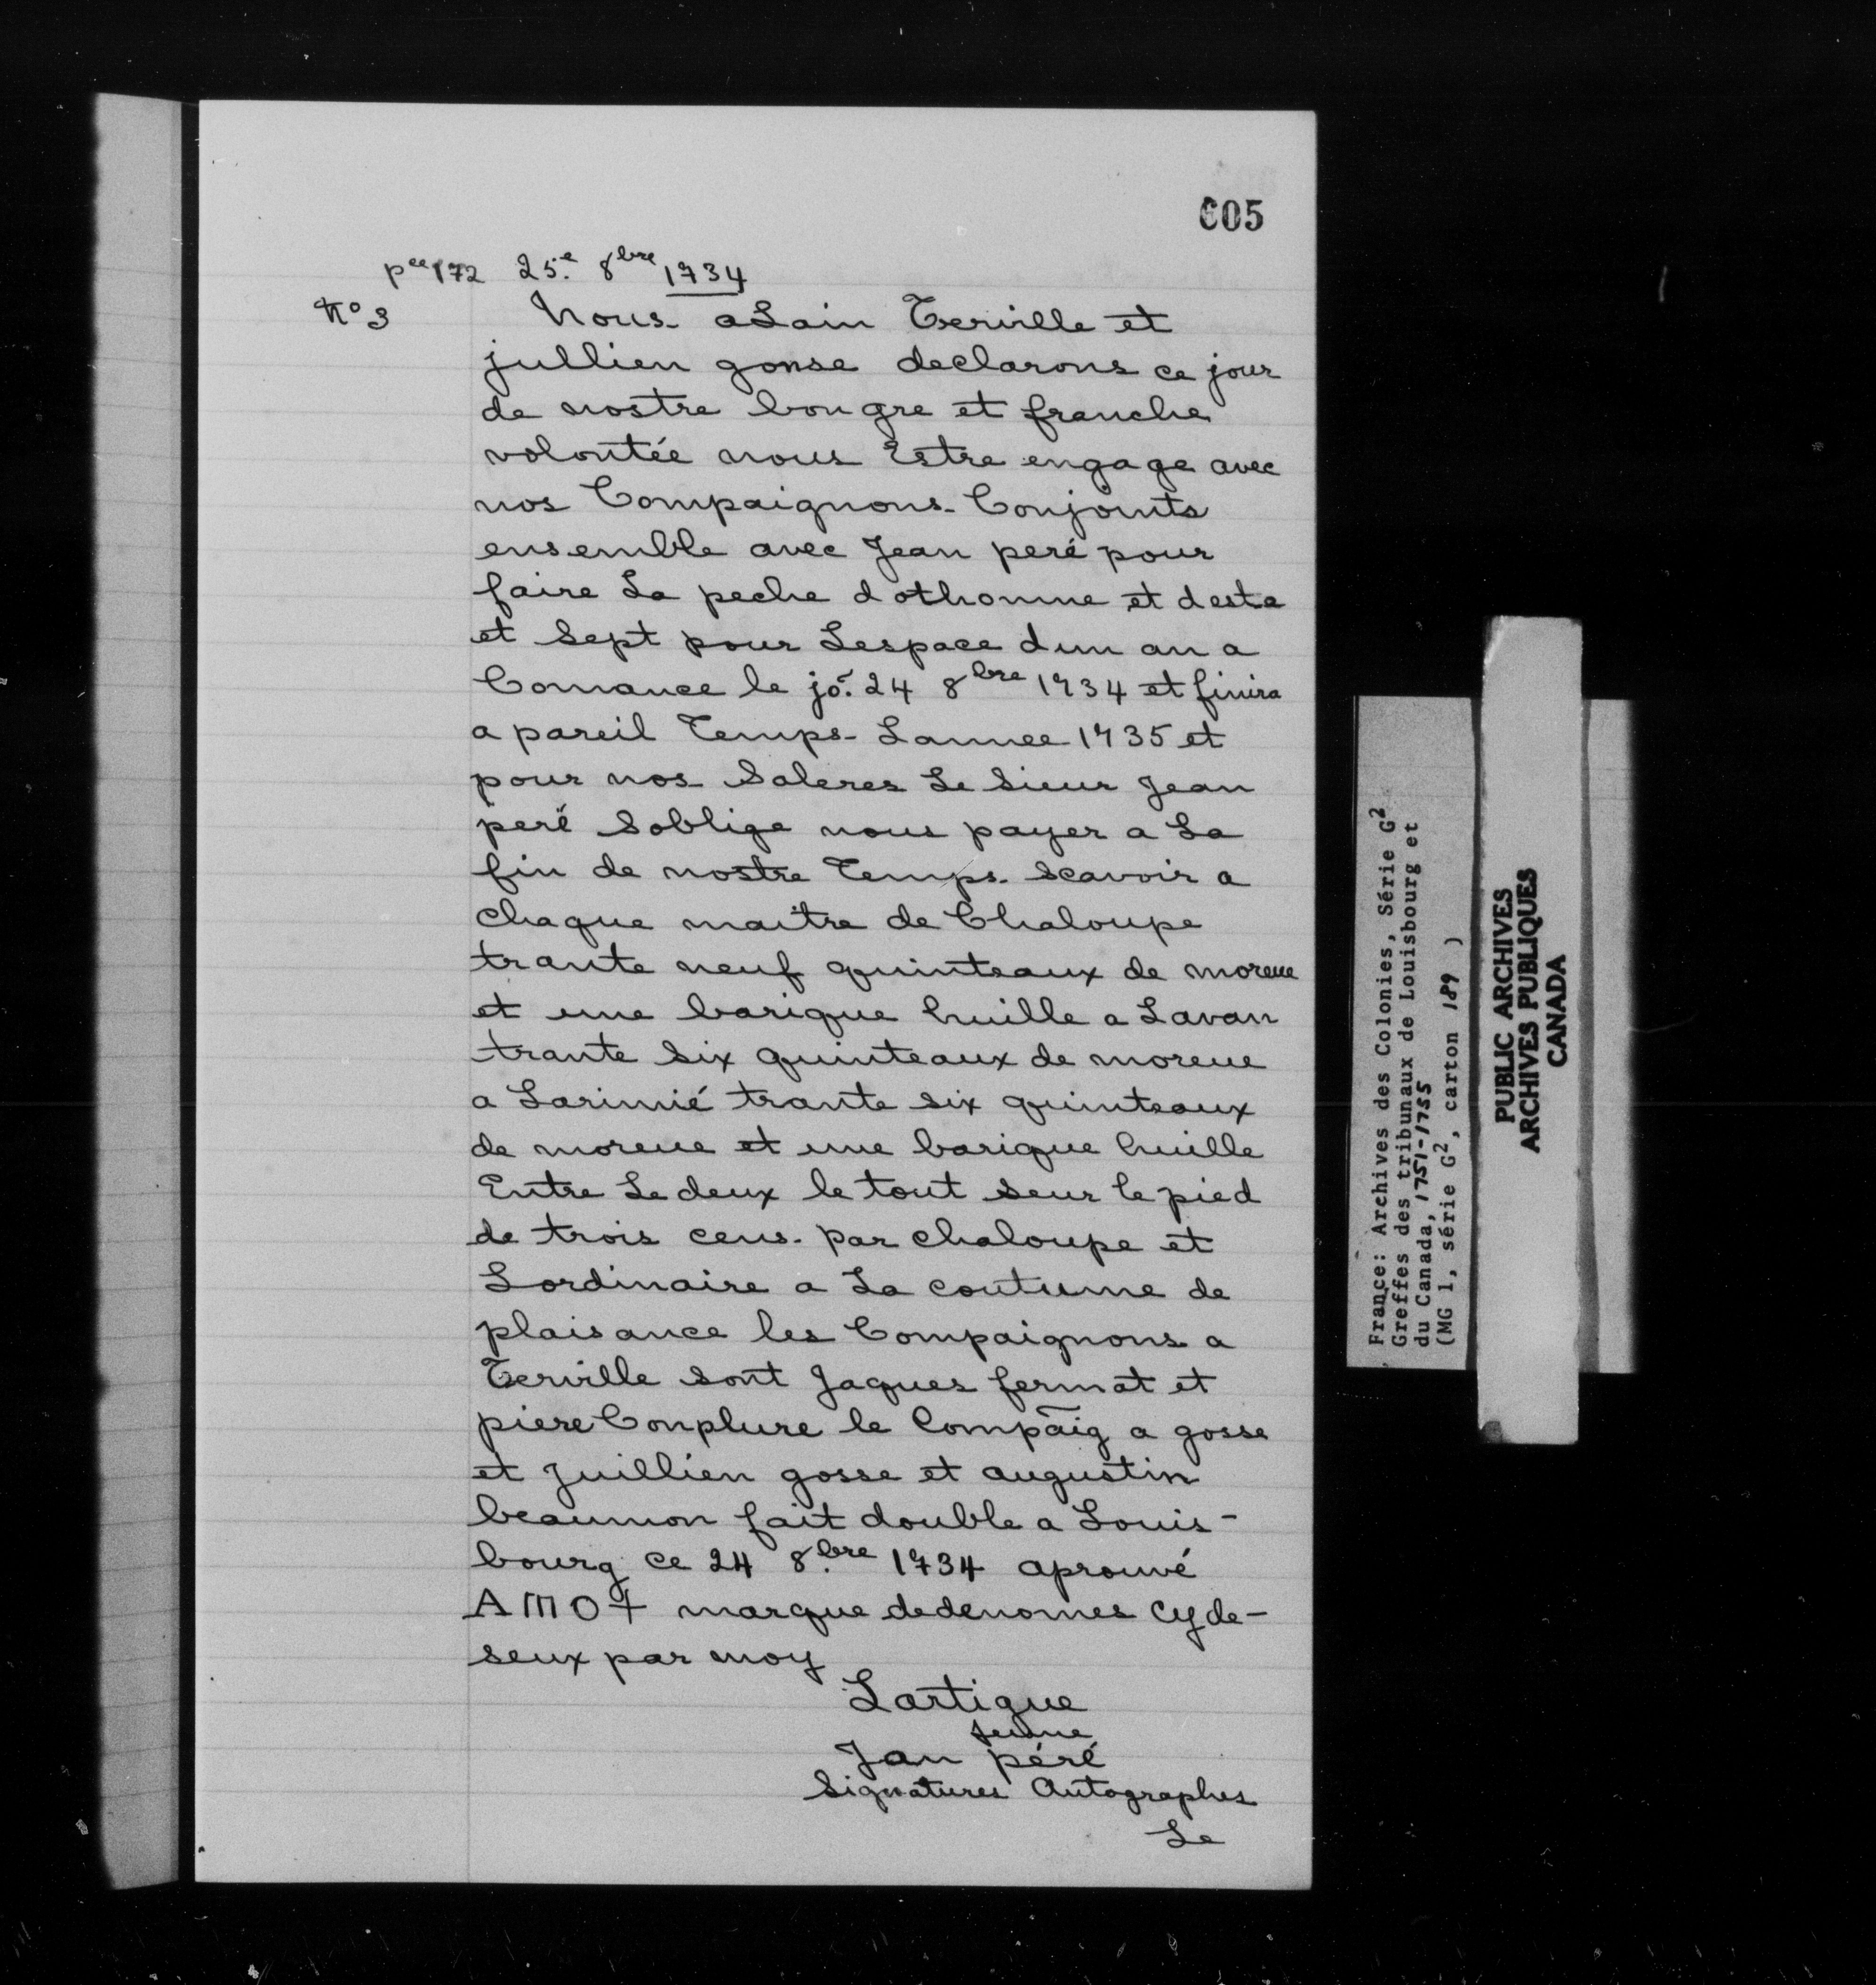 605
pce 172 25.e 8bre 1734
No 3 Nous alain Terville et
jullien gonse declarons ce jour
de nostre bon gre et franche
volontée nous Estre engage avec
nos Compaignons Conjoints
ensemble avec Jean peré pour
faire La peche dothonne et deste
et Sept pour Lespace dun an a
Comance le jo. 24 8bre 1734 et finira
a pareil Temps Lannee 1735 et
pour nos Saleres Le Sieur Jean
peré Soblige nous payer a La
fin de nostre Temps Scavoir a
chaque maitre de Chaloupe
trante neuf quinteaux de moreue
et une barique huille a Lavan
trante Six quinteaux de moreue
a Larimié trante six quinteaux
de moreue et une barique huille
Entre Le deux le tout seur le pied
de trois cens par chaloupe et
Lordinaire a La coutume de
plaisance les Compaignons a
Terville sont Jaques fermat et
piere Conplure le Compaig a gosse
et Juillien gosse et augustin
beaumon fait double a Louis-
bourg ce 24 8.bre 1734 aprouvé
A M O + marque dedenomes cy de-
seux par moy
Lartigue
Jeune
Jan péré
Signatures Autographes
Le
France: Archives des Colonies, Série G2
Greffes des tribunaux de Louisbourg et
du Canada, 1751-1755
(MG 1, série G2, carton 189 )
PUBLIC ARCHIVES
ARCHIVES PUBLIQUES
CANADA